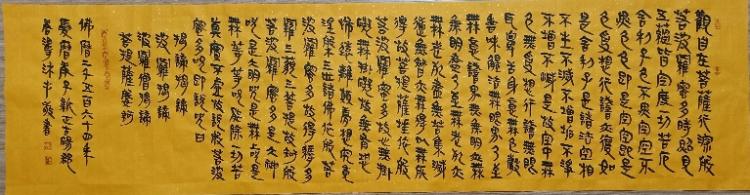 觀自在菩薩行深般
若波羅蜜多時照見
五蘊皆空度一切苦厄
舍利子色不異空空不
異色色即是空空即
是色受想行識亦復如
是舍利子是諸法空相
不生不滅不垢不淨
不增不減是故空中無
色無受想行識無眼
耳鼻舌身意無色聲
香味觸法無眼界乃至
無意識界無無明亦無
無明盡乃至無老死亦
無老死盡無苦集滅
道無智亦無得以無所
得故菩提薩埵依般
若波羅蜜多故心無罣
礙無罣礙故無有恐
怖遠離顛倒夢想究竟
涅槃三世諸佛依般若
波羅蜜多故得阿耨多
羅三藐三菩提故知般
若波羅蜜多是大神
咒是大明咒是無上咒是
無等等咒能除一切苦
真實不虛故說般若波羅
蜜多咒即說咒曰
揭諦揭諦
波羅揭諦
波羅僧揭諦
菩提薩婆訶
佛曆二千五百六十四年
農曆庚子新正吉
沐手敬書